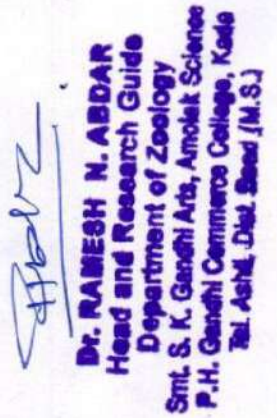 Dr. RAMESH N. ABDAR
Head and Research Guide
Department of Zoology
Smt. S. K. Gandhi Arts, Amolak Science
P.H. Gandhi Commerce College, Kada
Tal. Ashti, Dist. Beed (M.S.)